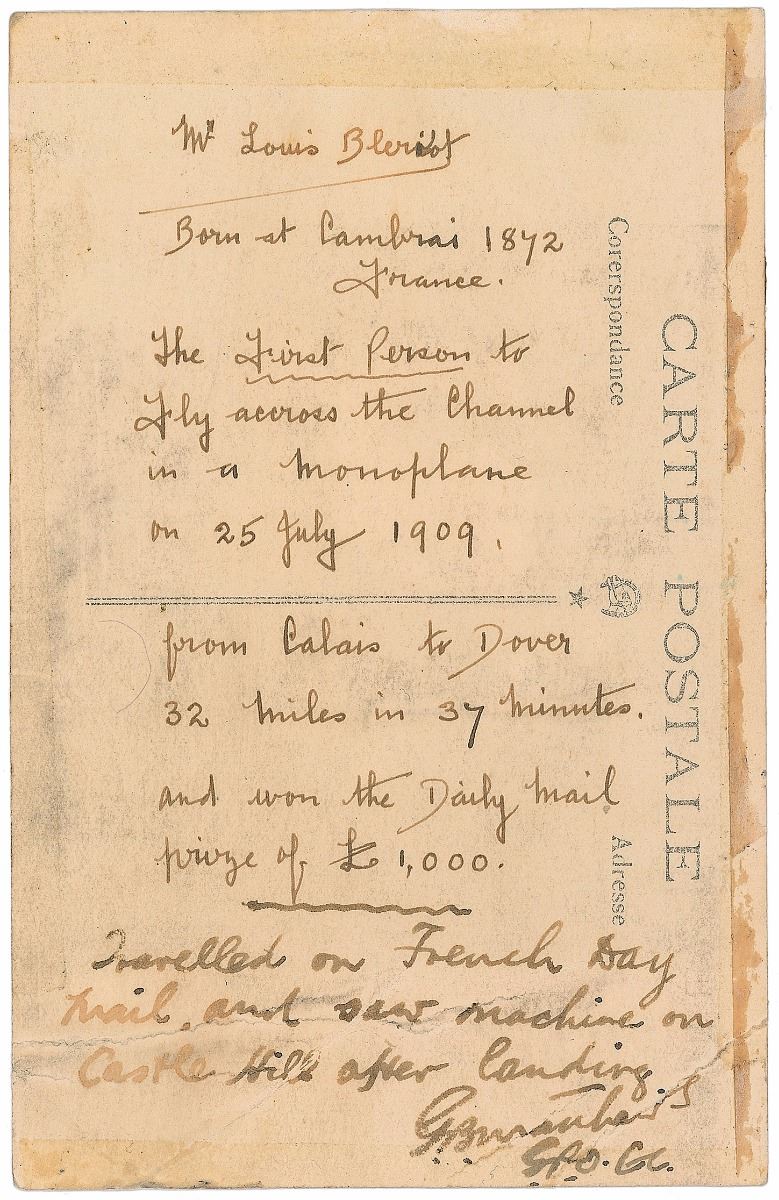 Mr Louis Bleriot
Born at Cambrai 1872
France.
The First Person to
Fly accross the Channel
in a monoplane
on 25 July 1909.
from Calais to Dover
32 miles in 37 minutes.
and won the Daily Mail
prize of £1,000.
Travelled on French Day
Mail, and saw machine on
Castle Hill after landing
G.P.O.
CARTE POSTALE
Corerspondance
Adresse